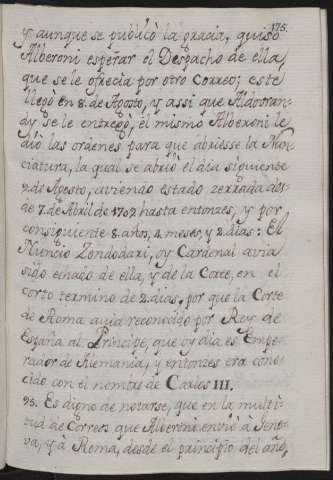 175.
y aunque se publicò la gracia, quiso
Alberoni esperar el Despacho de ella,
que se le ofrecia por otro Correo; este
llegò en 8. de Agosto, y assi que Aldovran-
dy se le entregò, el mismo Alberoni le
diò las ordenes para que abriesse la Nun-
ciatura, la qual se abriò el dia siguiente
9. de Agosto, aviendo estado zerrada des-
de 7. de Abril de 1702 hasta entonzes, y por
consiguiente 8. años, 4. meses, y 2. dias: El
Nuncio Zondodari, oy Cardenal avia
sido echado de ella, y de la Corte, en el
corto termino de 2. dias, por que la Corte
de Roma avia reconocido por Rey de
España al Principe, que oy dia es Empe-
rador de Alemania, y entonzes era cono-
cido con el nombre de Carlos III.
95. Es digno de notarse, que en la multi-
tud de Correos que Alberoni enviò à Geno-
va, y à Roma, desde el principio del año,